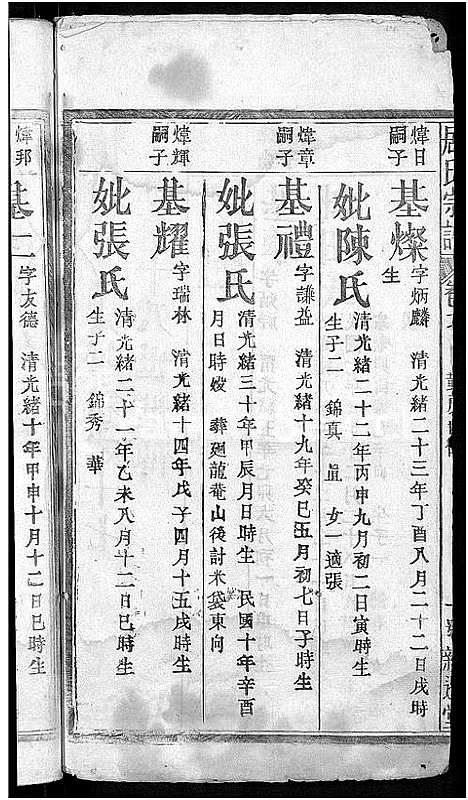 周氏宗譜
煒日嗣子
基燦 字炳麟 清光緒二十三年丁酉八月二十二日戌時生
妣陳氏 清光緒二十二年丙申九月初二日寅時生
生子二 錦真 女一適張
煒章嗣子
基禮 字謙益 清光緒十九年癸巳五月初七日子時生
妣張氏 清光緒三十年甲辰月日時生 民國十年辛酉
月日時歿 葬廻龍菴山後討米袋東向
煒輝嗣子
基耀 字瑞林 清光緒十四年戊子四月十五戌時生
妣張氏 清光緒二十一年乙未八月十二日巳時生
生子二 錦秀 華
煒邦
基 字友德 清光緒十年甲申十月十二日巳時生